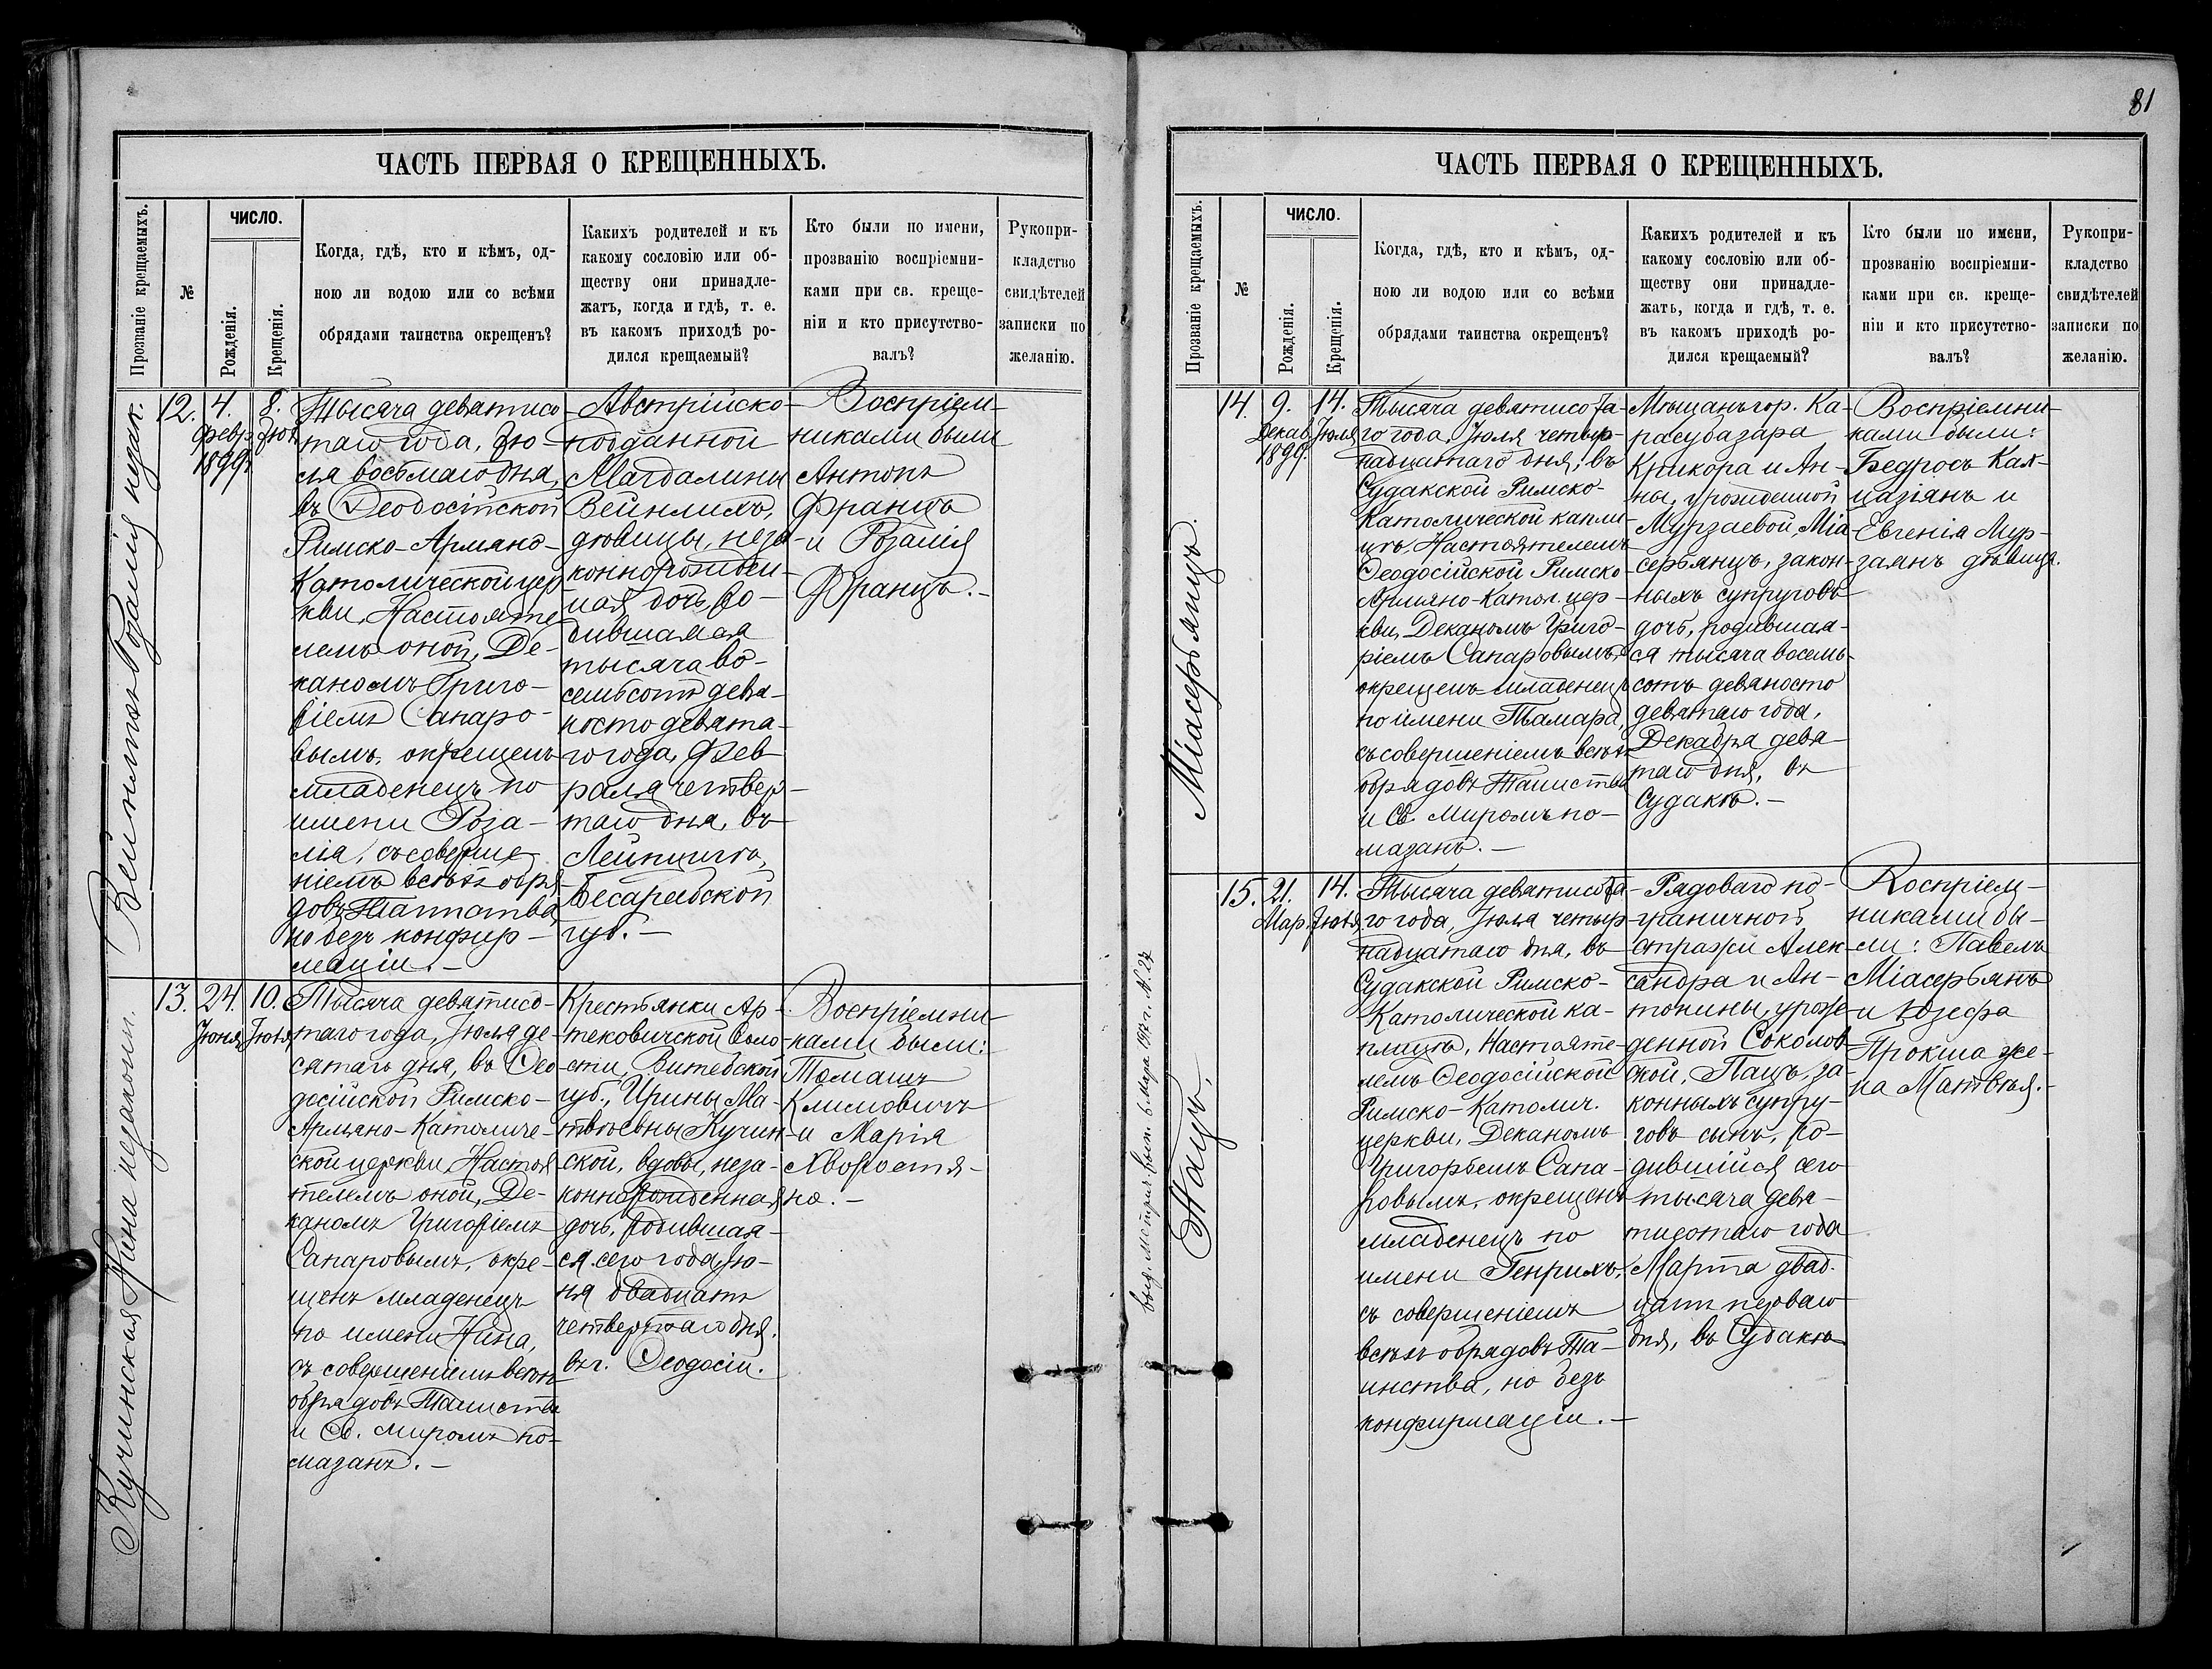 ЧАСТЬ ПЕРВАЯ О КРЕЩЕННЫХЪ.
Прозваніе крещаемыхъ.
№
ЧИСЛО.
Рожденія.
Крещенія.
Когда, гдѣ, кто и кѣмъ, од-
ною ли водою или со всѣми
обрядами таинства окрещенъ?
Какихъ родителей и къ
какому сословію или об-
ществу они принадле-
жатъ, когда и гдѣ, т. е.
въ какомъ приходѣ ро-
дился крещаемый?
Кто были по имени,
прозванію воспріемни-
ками при св. креще-
ніи и кто присутство-
валъ?
Рукопри-
кладство
свидѣтелей
записки по
желанію.
12.
4.
Февр.
1899г.
8.
Іюля
Тысяча девятисо-
таго года, Ію-
ля восьмаго дня,
въ Ѳеодосійской
Римско-Армяно-
Католической цер-
кви, Настояте-
лемъ оной, Де-
каномъ Григо-
ріемъ Сапаро-
вымъ, окрещенъ
младенецъ по
имени Роза-
лія, съ соверше-
ніемъ всѣхъ обря-
довъ Таинства,
но безъ конфир-
маціи.-
Австрійско-
подданной
Магдалины
Вейнлихъ,
дѣвицы, неза-
коннорожден-
ная дочь, ро-
дившаяся
тысяча во-
семьсотъ девя-
носто девята-
го года, Фев-
раля четвер-
таго дня, въ
Лейпцигѣ,
Бесарабской
губ.-
Воспріем-
никами были
Антонъ
Францъ
и Розалія
Францъ.-
Кучинская Нина незакон.
13.
24.
Іюня
10.
Іюля
Тысяча девятисо-
таго года, Іюля де-
сятаго дня, въ Ѳео-
досійской Римско-
Армяно-Католиче-
ской церкви, Настоя-
телемъ оной, Де-
каномъ Григоріемъ
Сапаровымъ, окре-
щенъ младенецъ
по имени Нина,
съ совершеніемъ всѣхъ
обрядовъ Таинства
и Св. Миромъ по-
мазанъ.-
Крестьянки Ар-
тековичской воло-
сти, Витебской
губ., Ирины Ма-
твѣевны Кучин-
ской, вдовы, неза-
коннорожденная
дочь, родившая-
ся сего года, Ію-
ня двадцать
четвертаго дня.
въ г. Ѳеодосіи.
Воспріемни-
ками были:
Томашъ
Климовичъ
и Марія
Хворостя-
на.-
81
ЧАСТЬ ПЕРВАЯ О КРЕЩЕННЫХЪ.
Прозваніе крещаемыхъ.
№
ЧИСЛО.
Рожденія.
Крещенія.
Когда, гдѣ, кто и кѣмъ, од-
ною ли водою или со всѣми
обрядами таинства окрещенъ?
Какихъ родителей и къ
какому сословію или об-
ществу они принадле-
жатъ, когда и гдѣ, т. е.
въ какомъ приходѣ ро-
дился крещаемый?
Кто были по имени,
прозванію воспріемни-
ками при св. креще-
ніи и кто присутство-
валъ?
Рукопри-
кладство
свидѣтелей
записки по
желанію.
Міасерьянцъ.
14.
9.
Декаб.
1899.
14.
Іюля
Тысяча девятисота-
го года, Іюля четыр-
надцатаго дня, въ
Судакской Римско-
Католической капли-
цѣ, Настоятелемъ
Ѳеодосійской Римско
Армяно-Катол. цер-
кви, Деканомъ Григо-
ріемъ Сапаровымъ,
окрещенъ младенецъ
по имени Тамара,
съ совершеніемъ всѣхъ
обрядовъ Таинства
и Св. Миромъ по-
мазанъ.-
Мѣщанъ гор. Ка-
расубазара
Крикора и Ан-
ны, урожденной
Мурзаевой, Міа-
серьянцъ, закон-
ныхъ супруговъ
дочь, родившая-
ся тысяча восемь-
сотъ девяносто
девятаго года,
Декабря девя-
таго дня, въ
Судакѣ.-
Воспріемни-
ками были:
Бедросъ Кал-
паззянъ и
Евгенія Мур-
заянъ дѣвица.
Пацъ.
15.
21.
Мар.
14.
Іюля
Тысяча девятисота-
го года, Іюля четыр-
надцатаго дня, въ
Судакской Римско-
Католической ка-
плицѣ, Настояте-
лемъ Ѳеодосійской
Римско-Католич.
церкви, Деканомъ
Григорьемъ Сапа-
ровымъ, окрещенъ
младенецъ по
имени Генрихъ,
съ совершеніемъ
всѣхъ обрядовъ Та-
инства, но безъ
конфирмаціи.-
Рядоваго по-
граничной
стражи Алек-
сандра и Ан-
тонины, урож-
денной Соколов-
ской, Пацъ, за-
конныхъ супру-
говъ сынъ, ро-
дившійся сего
тысяча девя-
тисотаго года
Марта двад-
цати перваго
дня, въ Судакѣ
Воспріем-
никами бы-
ли: Павелъ
Міасерьянъ
и Юзефа
Прокша же-
на Матвѣя.-